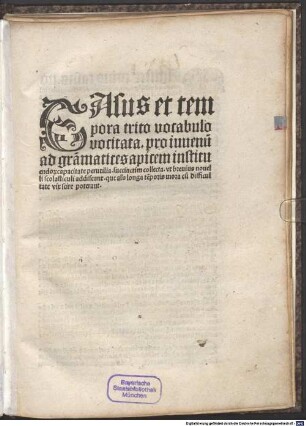 CAsus et tem
pora trito vocabulo
vocitata. pro iuuenũ
ad grãmatices apicem institu
endoꝝ capacitate perutilia. succinctim collecta. vt breuius nouel
li scolasticuli addiscant. que alias longa tẽporis mora cũ difficul
tate vix scire poterant.
Bayerische
Staatsbibliothek
München